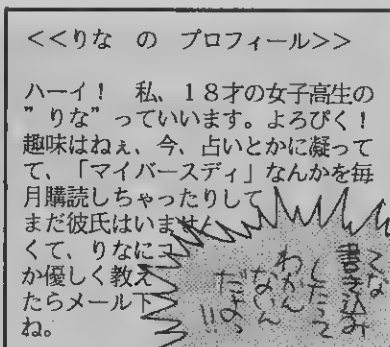 <<りな の プロフィール>>
ハーイ! 私、18才の女子高生の
”りな”っていいます。よろぴく!
趣味はねぇ、今、占いとかに凝って
て、「マイバースディ」なんかを毎
月購読しちゃったりして
まだ彼氏はいません
くて、りなにコ
か優しく教え
たらメール下
ね。
こんな
書き込み
したって
わかん
ないん
だよっ
!!